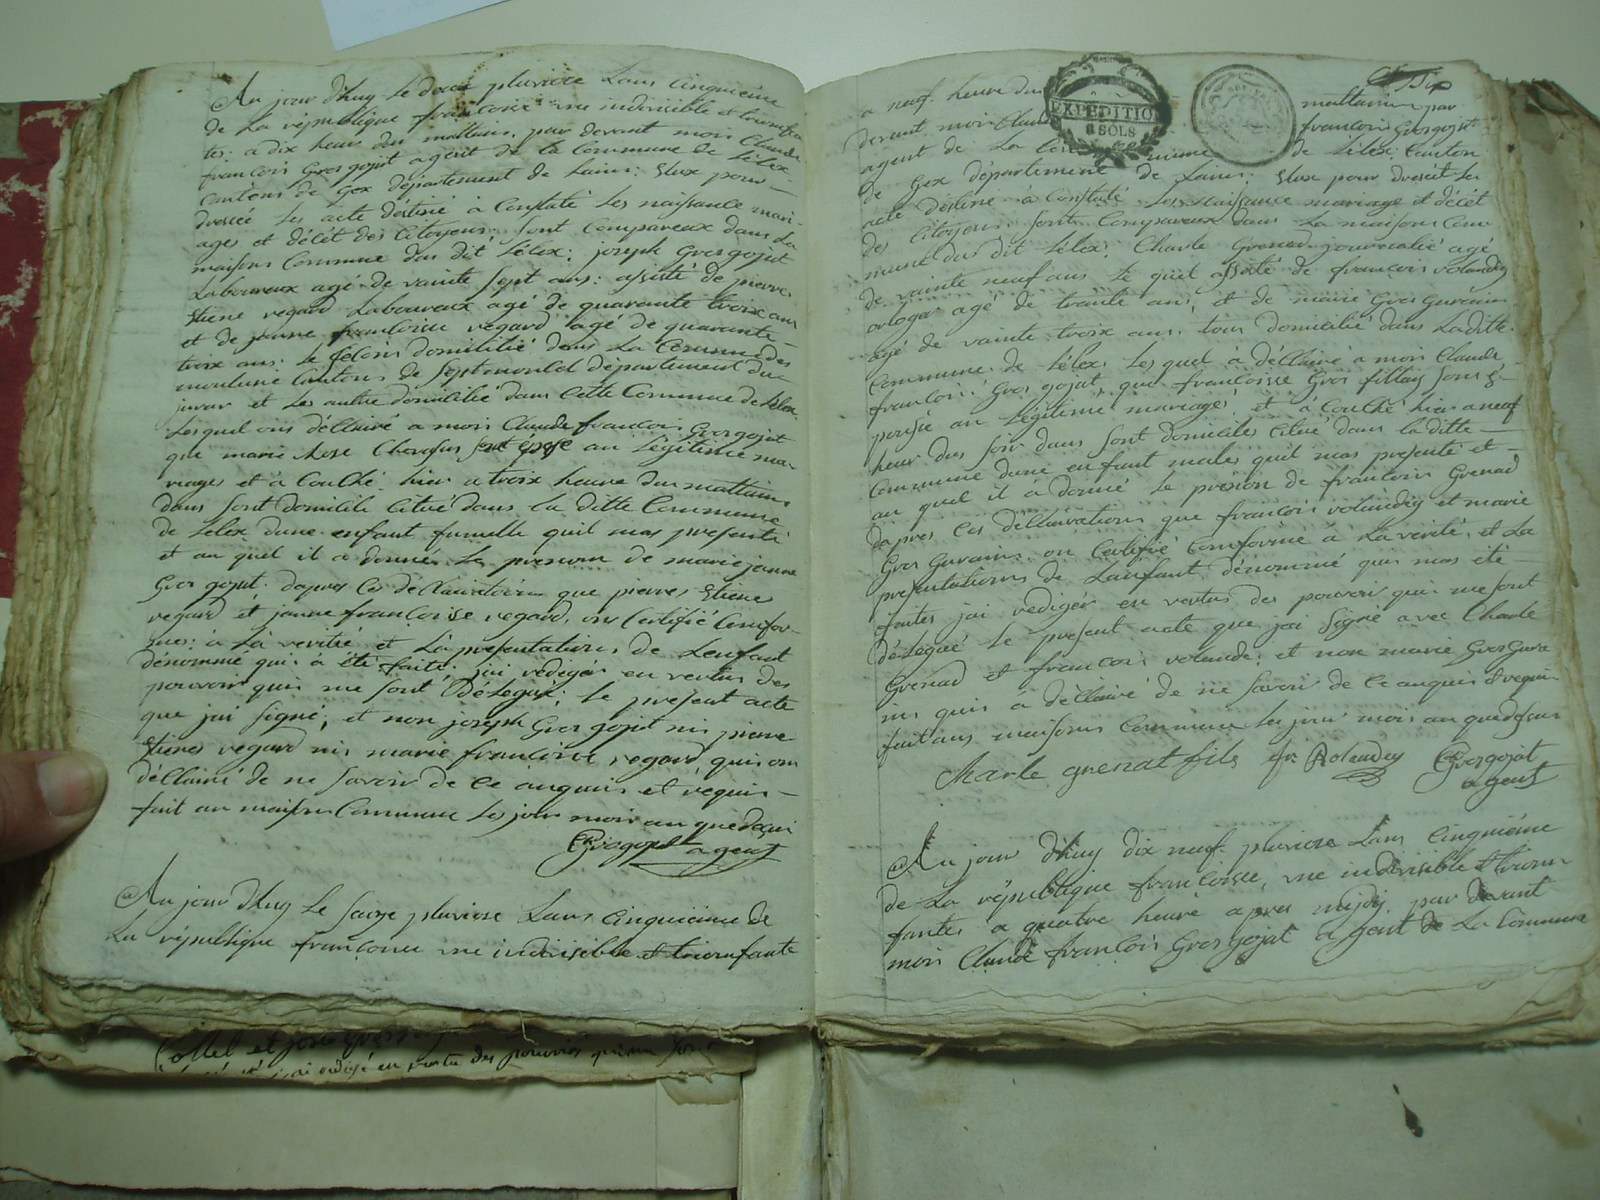 Au jour d'huy le douze pluviose Lans Cinquieme
de La rèpublique francoise une indivisible et trionfan
tes: a dix heur du mattain, par devant moi Claude
francois Gros gojat agent de la Commune de Lélex
Cantons de Gex département de Lains: Elux pour
dressée les acte destiné à Constaté les naissance mari-
ages et décét des Citoyens, sont Compareux dans La
maisons Commune du dit Lélex: joseph Gros gojat
Laboureux agé de vainte sept ans: assisté de pierre
Etiene regard Laboureux agé de quarante troix ans
et de jeanne francoise regard agé de quarante
troix ans: le sélons domicilié dans La Commune des
moulune Cantons de septmoncel département du
jurar et les autre domicilié dans Cette Commune de Lélex
Lesquel ons déClairé a moi Claude francois Gros gojat
que marie Rose Chevassus sont épose an Légitime ma-
riages et à Couché hier a troix heure du mattains
dans sont domicile Citué dans la ditte Commune
de Lélex dune enfant fumelle quil mas presenté
et au quel il a donnée le prenom de marie jeanne
Gros gojat. dapres Ces déClairations que pierre Etiene
regard et janne francoise regard, ons Certifié Confor-
mes: à La verité et La presentations de Lenfant
dénommé qui a été faite, jai rédigér en vertus des
pouvoir qui me sont délégué: le present acte
que jai signé, et non joseph Gros gojat ni pierre
Etienes regard ni marie francoise regard qui on
déClairé de ne savoir de Ce anquis et réquis
fait an maison Commune Les jour mois an que decui
Grosgojat agent
Au jour d'huy le saize pluviose Lans Cinquieme de
La république francoise une indivisible et trionfante
a neuf heure du mattain par
EXPÉDITION
SOLS
devant moi Claude francois Gros gojat
agent de La Commune de Lélex Canton
de Gex département de Lains: Elux pour dressét les
acte déstiné à Constaté Les Naissance mariage et décét
des Citoyens sont Compareux dans La maisons Com
mune du dit Lélex, Charle Grenad journalié agé
de vainte neuf ans le quel assisté de francois rolandez
orloger agé de trante ans et de marie Gros Gurain
agé de vainte troix ans: tous domicilié dans Laditte
Commune de Lélex, Les quel à déClairé a moi Claude
francois Gros gojat que francoisse Gros fillais sons é-
porsée an Légitime mariage et à Couché hier a neuf
heur du soir dans sont domiciles Citué dans la ditte
Commune dune enfant males quil mas présenté et
au quel il à donné Le prenon de francois Grenad
dapres Ces déClairations que francois rolandez et marie
Gros Gurains on Certifié Conforme à La verité et La
presentations de Lanfant dénommé qui mas été
faites jai redigér en vertus des pouvoir qui me sont
délegué le present acte que jai signé avec Charle
Grenad et francois rolande: et non marie Gros Gura
ins qui à déClairé de ne savoir de Ce anquis et requi
fait ans maisons Commune les jour mois an que desus
Charle grenat fils fr. Rolandez Grosgojat
agent
Au jour d'huy dix neuf pluviose Lans Cinquiéme
de La république francoisse, une indivisible et trion
fantes a quatre heure apres midy par devant
moi Claude francois Gros Gojat agent de La Commune